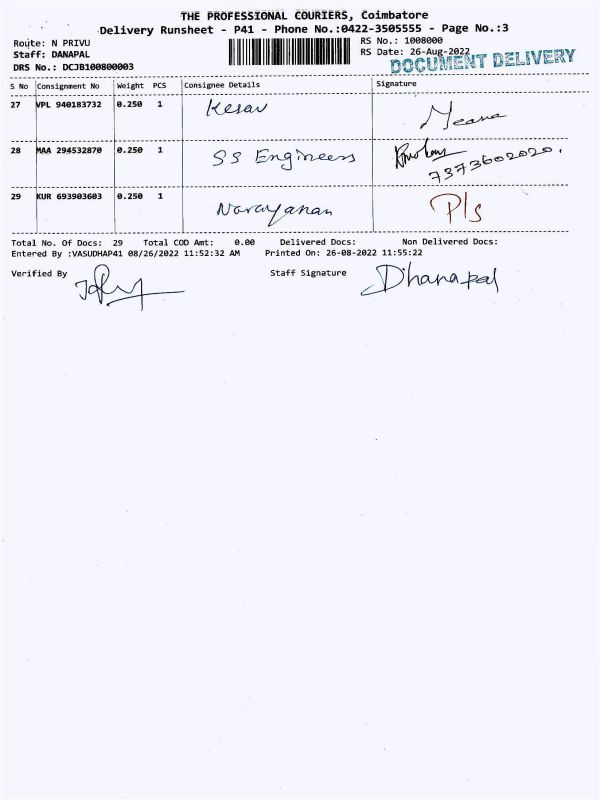 THE PROFESSIONAL COURIERS, Coimbatore
Delivery Runsheet - P41 - Phone No.:0422-3505555 - Page No.:3
Route: N PRIVU
RS No.: 1008000
Staff: DANAPAL
RS Date: 26-Aug-2022
DRS No.: DCJB100800003
DOCUMENT DELIVERY
S No Consignment No Weight PCS Consignee Details Signature
27 VPL 940183732 0.250 1 Kesav Meana
28 MAA 294532870 0.250 1 SS Engineers
7373602020.
29 KUR 693903603 0.250 1 Narayanan P/s
Total No. Of Docs: 29 Total COD Amt: 0.00 Delivered Docs: Non Delivered Docs:
Entered By :VASUDHAP41 08/26/2022 11:52:32 AM Printed On: 26-08-2022 11:55:22
Verified By Staff Signature Dhanapal